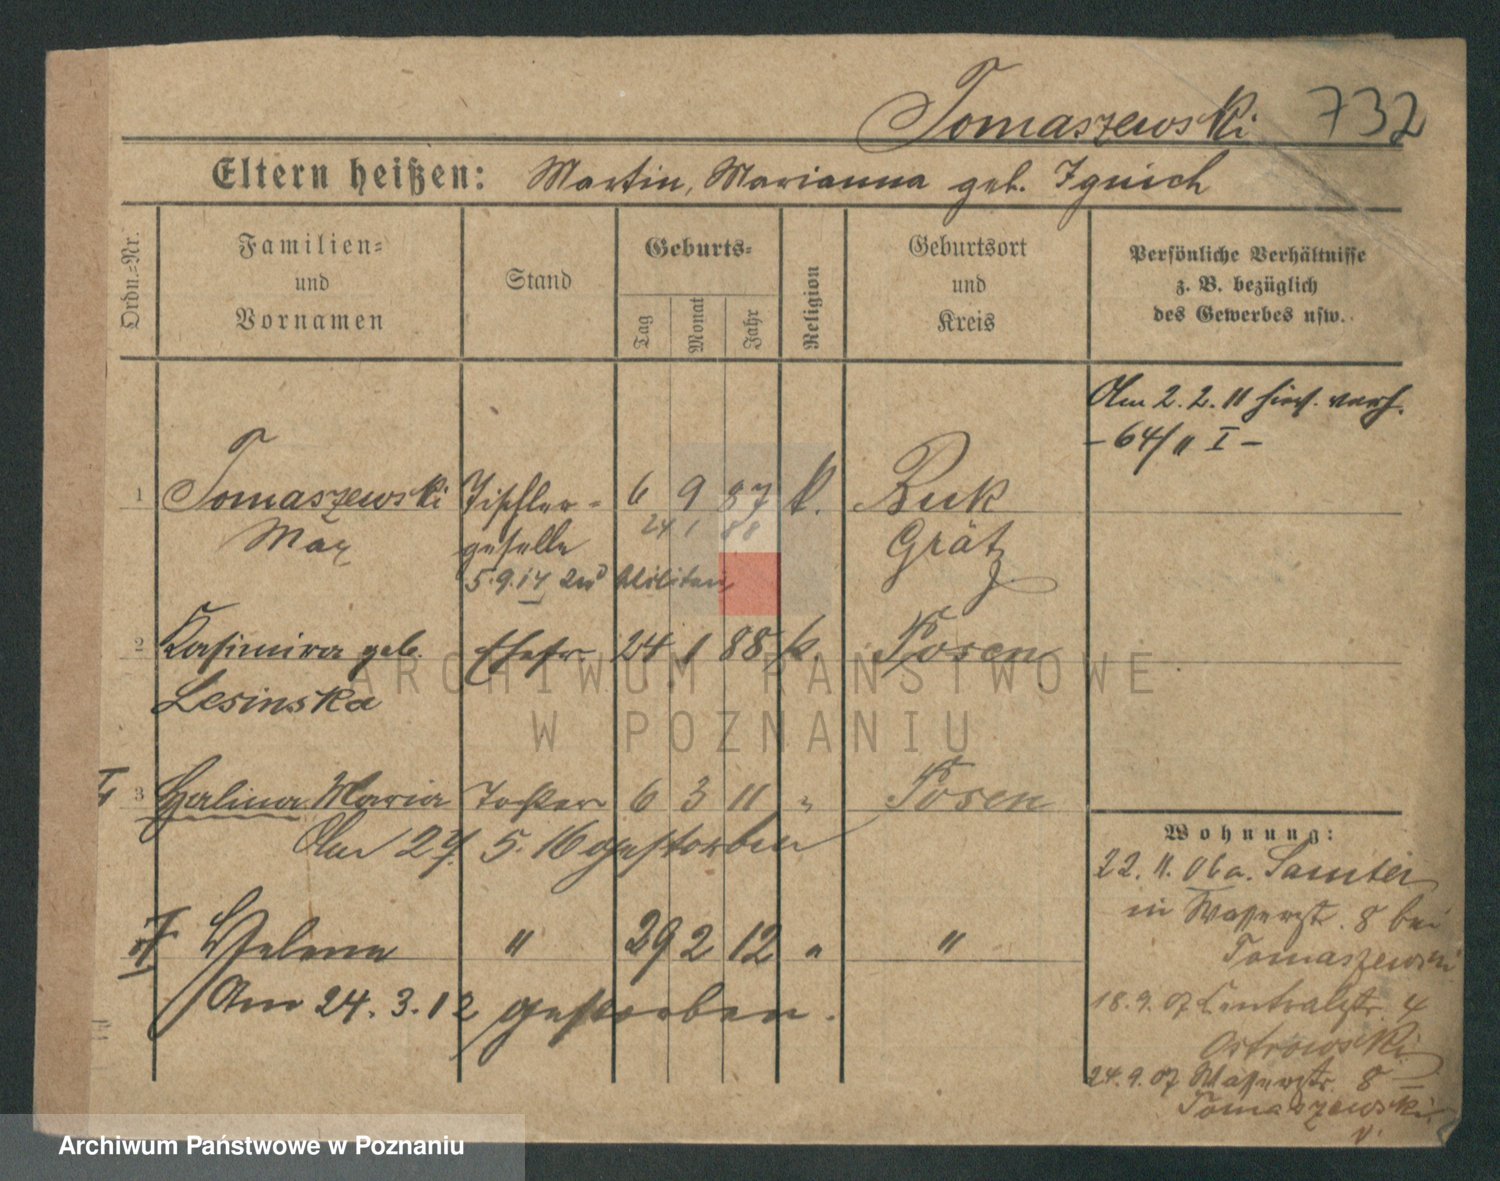 Tomaszewski 732
Eltern heißen: Martin, Marianna geb. Ignich
Ordn.-Nr.
Familien-
und
Vornamen
Stand
Geburts-
Tag
Monat
Jahr
Religion
Geburtsort
und
Kreis
Persönliche Verhältnisse
z. B. bezüglich
des Gewerbes usw.
Am 2. 2. 11 hies. verh.
- 64/11 I -
1 Tomaszewski Tischler- 6 9 87 k. Buk
24 1 88
Max geselle Grätz
5.9.14 zu Militär
2 Kasimira geb. Ehefr. 24 1 88 k Posen
Lesinska
ARCHIWUM PAŃSTWOWE
W POZNANIU
3 Halina Maria Tochter 6 3 11 " Posen
Am 27. 5. 16 gestorben
Helena " 29 2 12 " "
Am 24. 3. 12 gestorben.
Wohnung:
22. 11. 06 a. Samter
in Wasserstr. 8 bei
Tomaszewski
18. 9. 07 Centralstr. 4
Ostrowski
24. 9. 07 Wasserstr. 8
Tomaszewski
v.
Archiwum Państwowe w Poznaniu